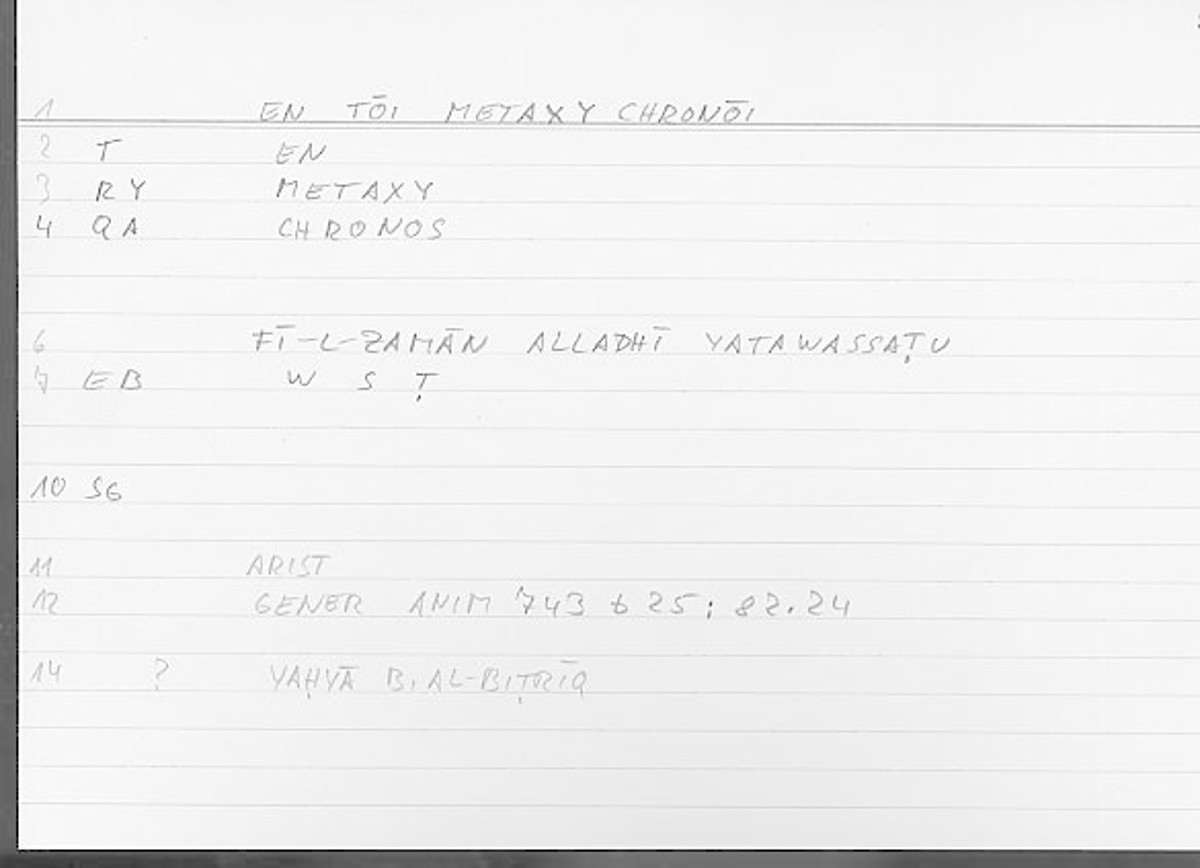 1 EN TŌI METAXY CHRONŌI
2 T EN
3 RY METAXY
4 QA CHRONOS
6 FĪ-L-ZAMĀN ALLADHĪ YATAWASSAṬU
7 EB W S Ṭ
10 SG
11 ARIST
12 GENER ANIM 743 b 25; 82.24
14 ? YAḤYĀ B. AL-BIṬRĪQ